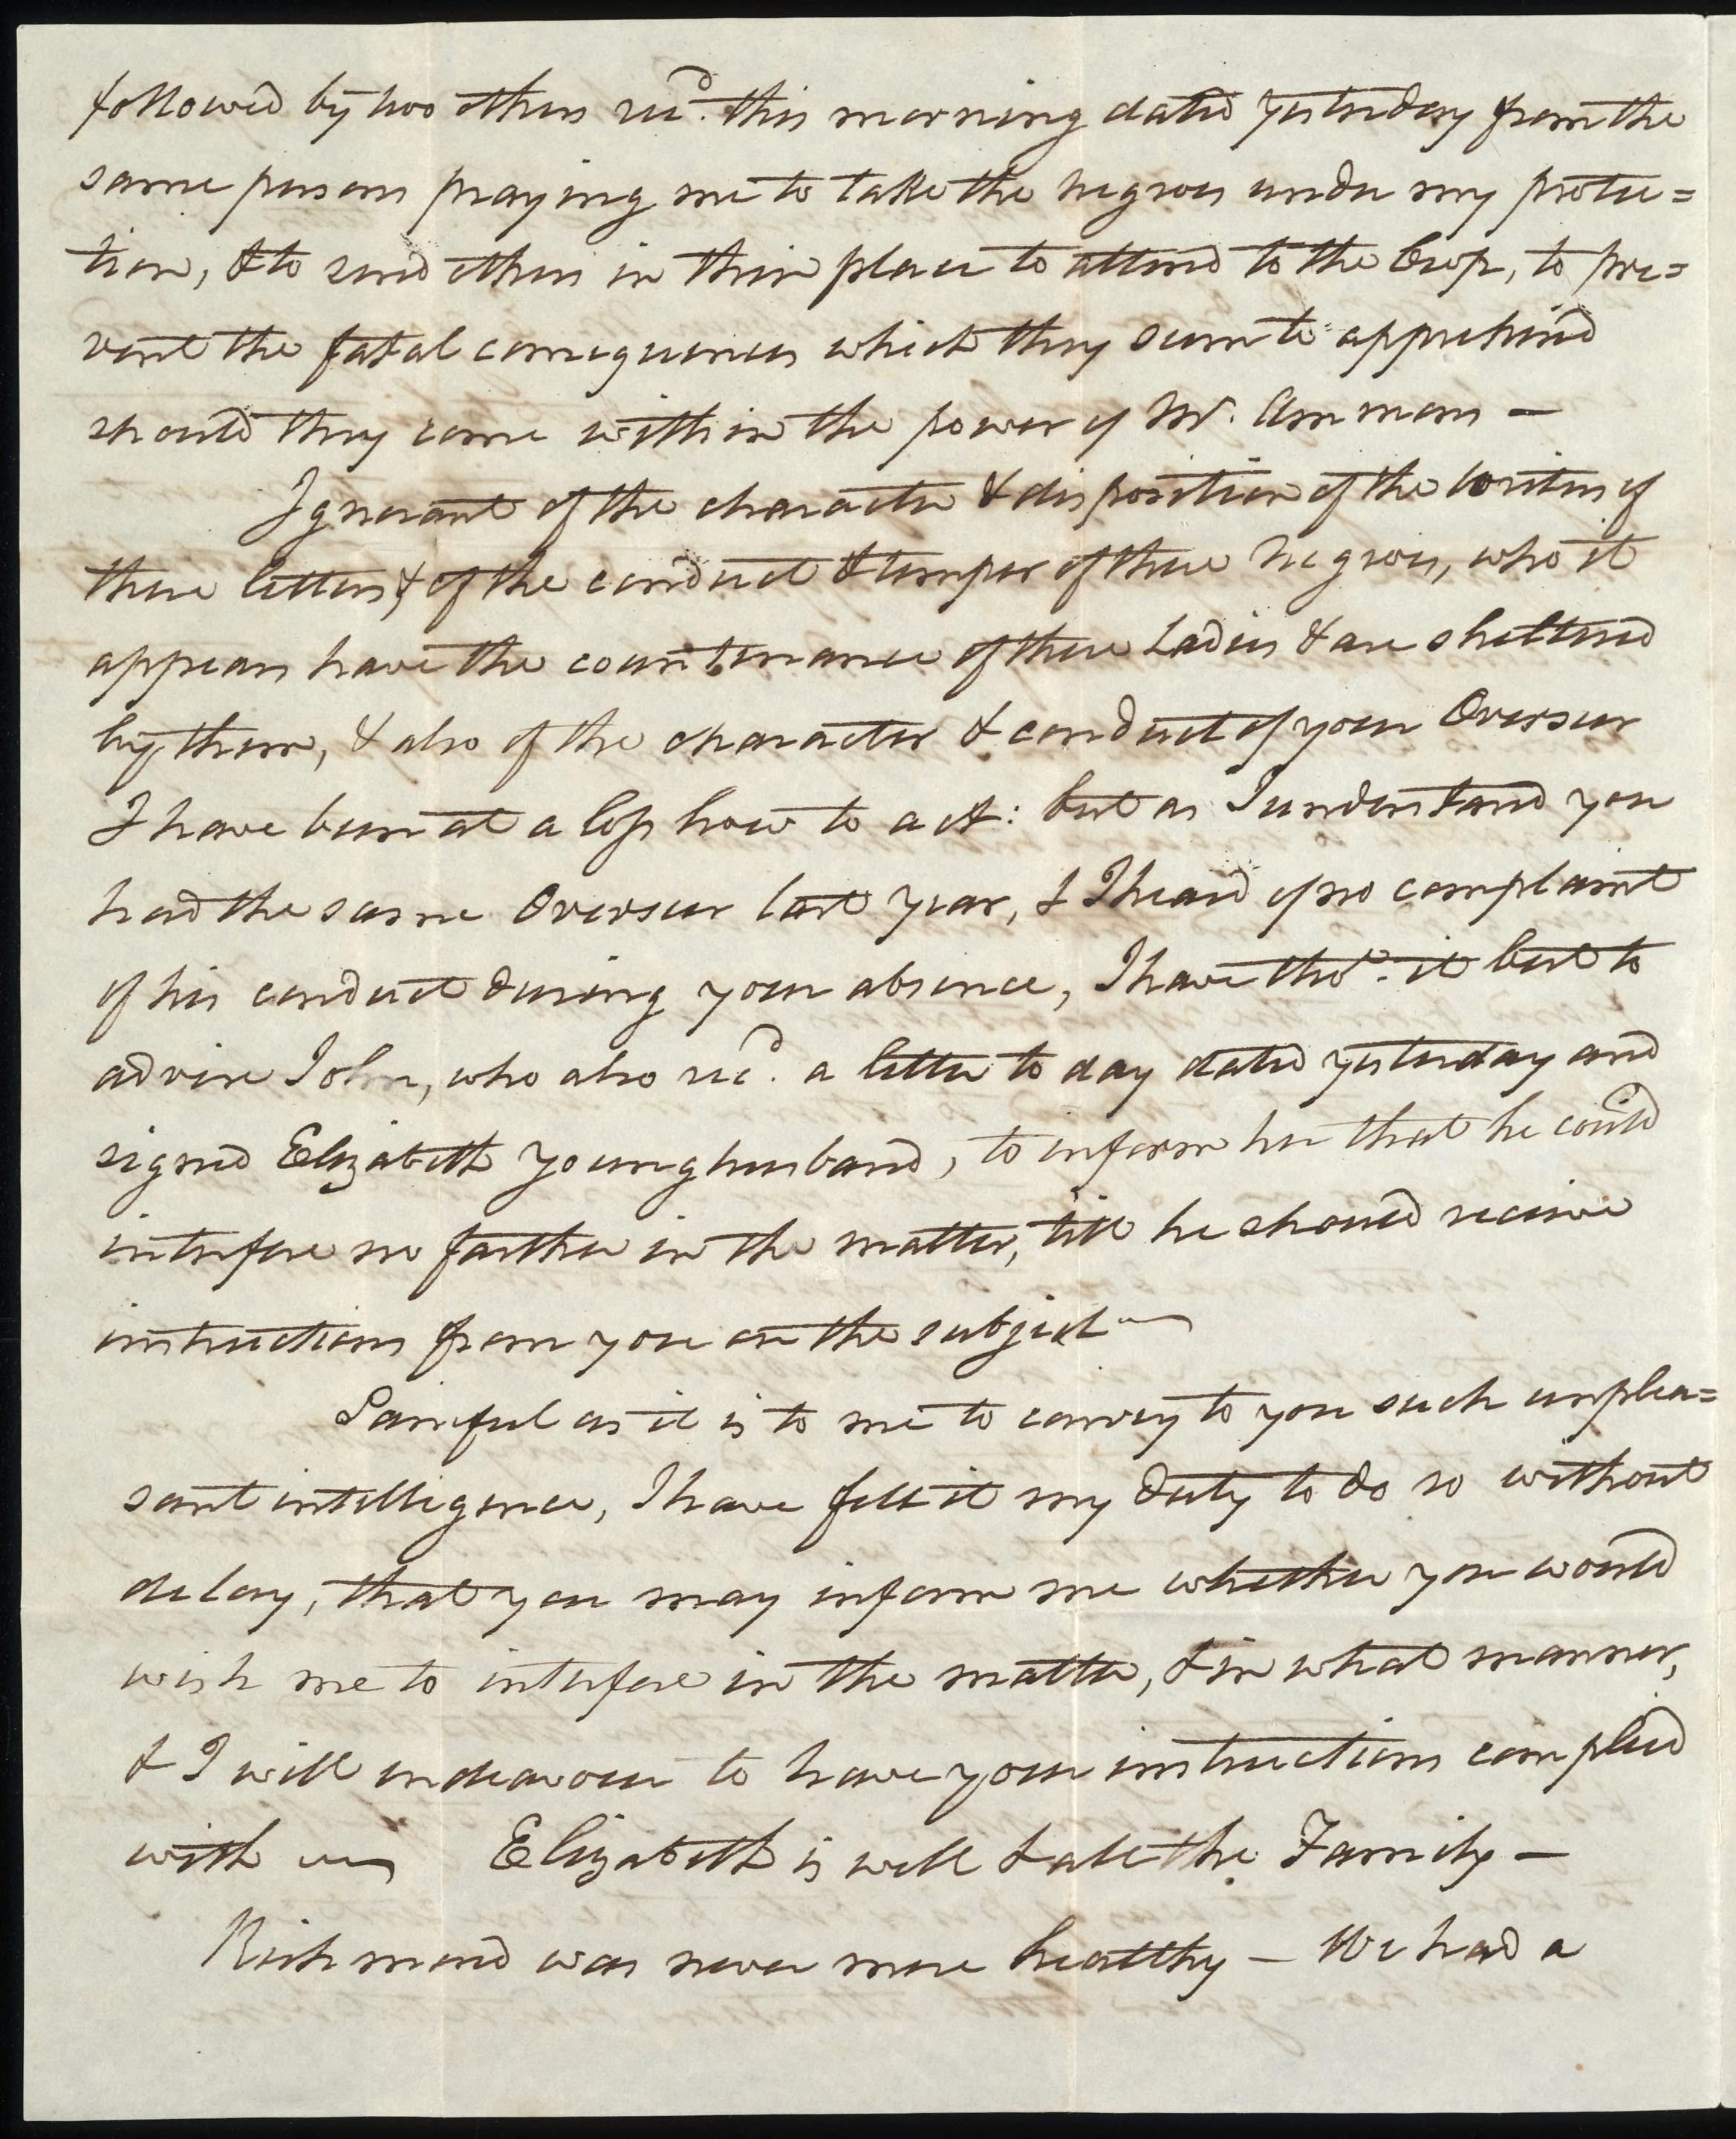 followed by two others recd. this morning dated yesterday from the
same persons praying me to take the negroes under my protec=
tion, & to send others in their place to attend to the Crop, to pre=
vent the fatal consequences which they seem to apprehend
should they come within the power of Mr. Ammons —
Ignorant of the character & disposition of the writers of
these letters, & of the conduct & temper of these Negroes, who it
appears have the countenance of these Ladies & are sheltered
by them, & also of the character & conduct of your Overseer
I have been at a loss how to act: but as I understand you
had the same Overseer last year, & I heard of no complaint
of his conduct during your absence, I have tho't it best to
advise John, who also recd. a letter to day dated yesterday and
signed Elizabeth Younghusband, to inform her that he could
interfere no farther in the matter, till he should receive
instructions from you on the subject —
Painful as it is to me to convey to you such unplea=
sant intelligence, I have felt it my duty to do so without
delay, that you may inform me whether you would
wish me to interfere in the matter, & in what manner,
& I will endeavour to have your instructions complied
with — Elizabeth is well & all the Family —
Richmond was never more healthy — We had a